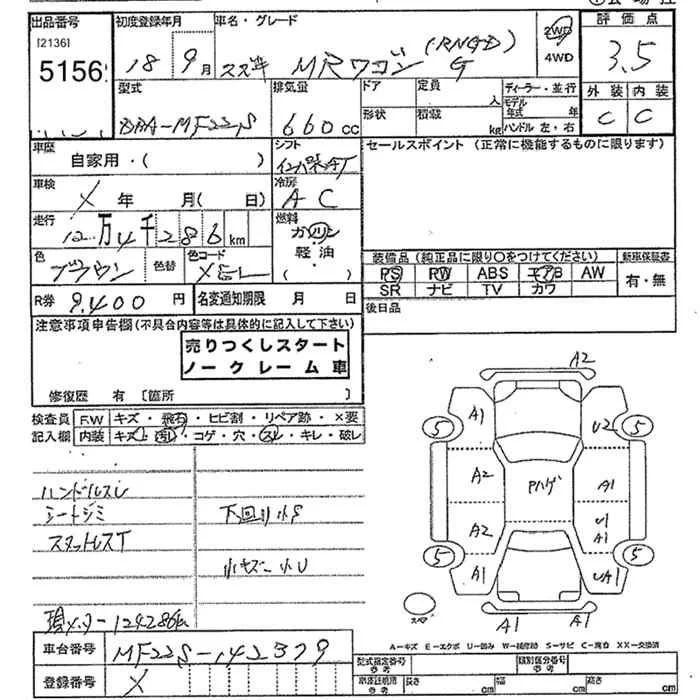 出品番号 初度登録年月 車名・グレード 評価点
[2136] 5156
18 9月 スズキ MRワゴン (RNGD) G 2WD 4WD 3.5
型式 排気量 ドア 定員 人 ディーラー・並行 外装 内装
DBA-MF22S 660cc 形状 積載 kg モデル年式 年 ハンドル 左・右 C C
車歴 自家用・( ) シフト セールスポイント (正常に機能するものに限ります)
車検 X 年 月( 日) 冷房 AC
走行 12万4千286km 燃料 ガソリン 軽油 ( )
色 ブラウン 色替 色コード 装備品(純正品に限り○をつけてください) 新車保証書
PS PW ABS エアB AW 有・無
SR ナビ TV カワ
R券 9,400円 名変通知期限 月 日 後日品
注意事項申告欄(不具合内容等は具体的に記入して下さい)
売りつくしスタート
ノークレーム車
修復歴 有 〔箇所 〕
検査員 F.W キズ・飛石・ヒビ割・リペア跡・×要
記入欄 内装 キズ・汚れ・コゲ・穴・スレ・キレ・破レ
ハンドルスレ
シートシミ 下回り小S
スタットレスT
小キズ 小U
現メーター124286km
A2
A1 U2
5 5
A2 Pハゲ A1
A2 U1 A1
5 5
A1 UA1
スペア A1 A1
A-キズ E-エクボ U-凹み W-補修跡 S-サビ C-腐食 XX-交換済
車台番号 MF22S-142379
登録番号 X
型式指定番号 参考 類別区分番号 参考
長さ cm 幅 cm 高さ cm